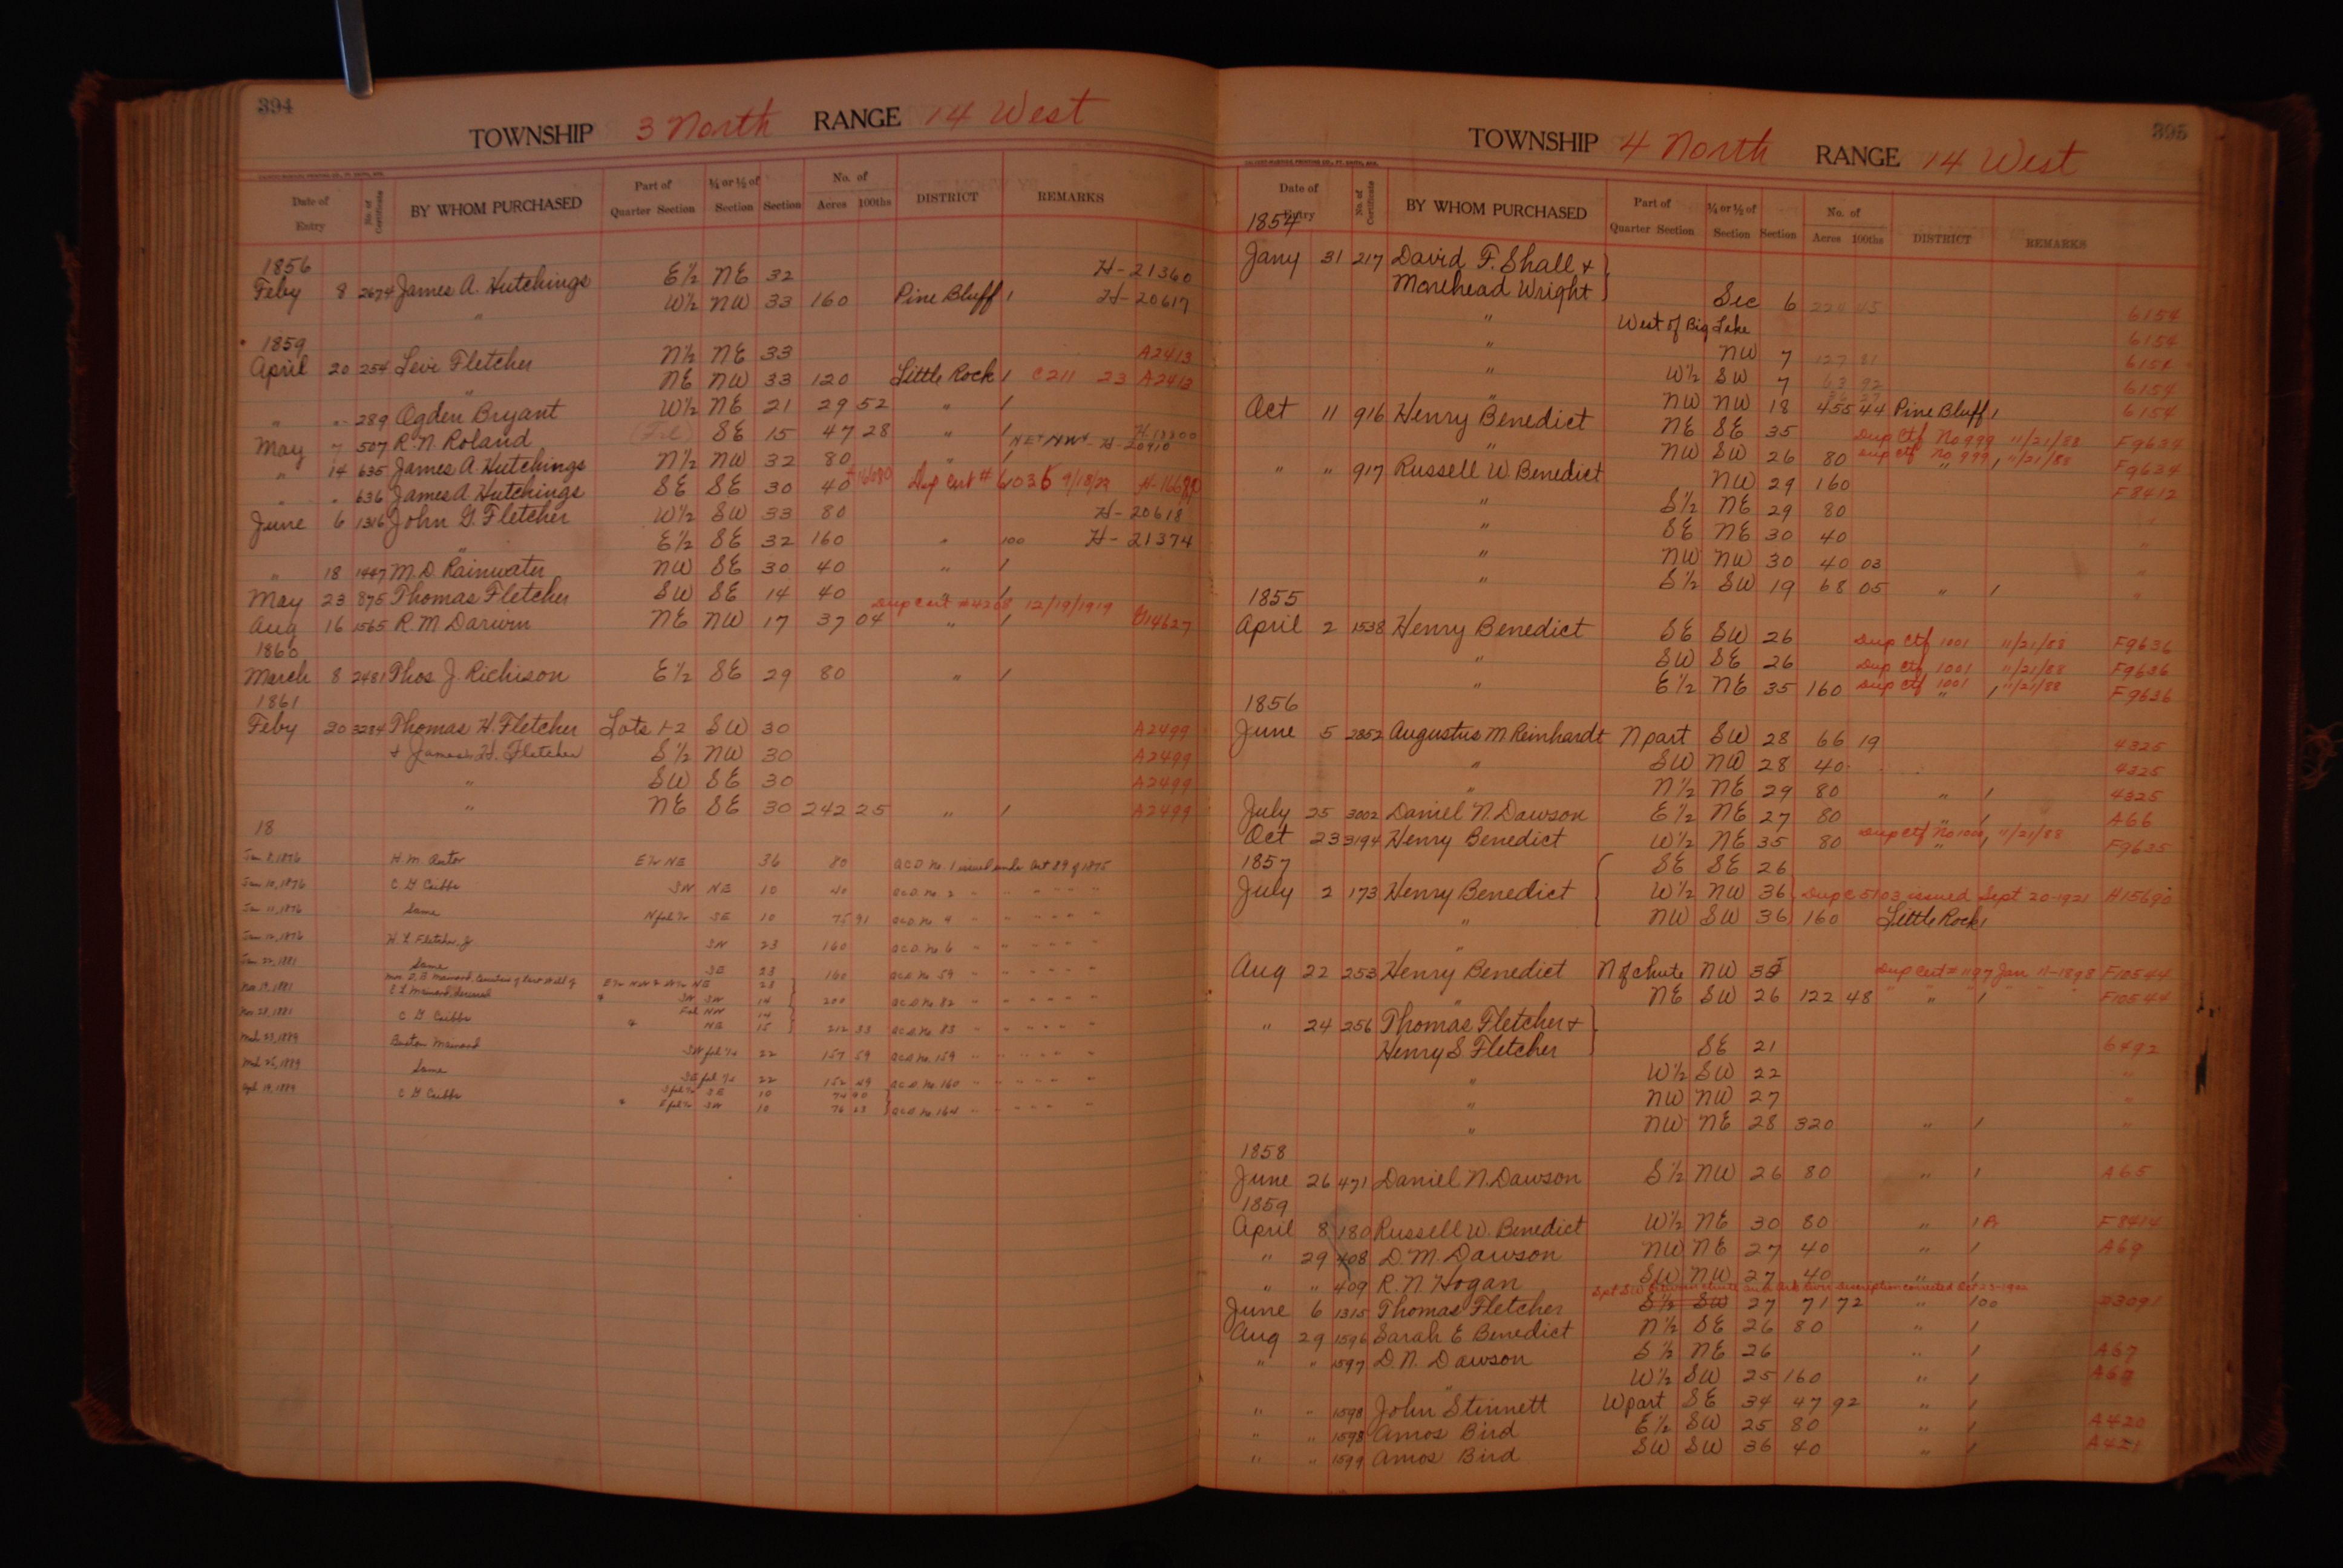 394
TOWNSHIP 3 North RANGE 14 West
Date of Entry No. of Certificate BY WHOM PURCHASED Part of Quarter Section ¼ or ½ of Section Section No. of Acres 100ths DISTRICT REMARKS
1856
Feby 8 2674 James A. Hutchings E½ NE 32 H-21360
" W½ NW 33 160 Pine Bluff 1 H-20617
1859
April 20 254 Levi Fletcher N½ NE 33 A2413
" NE NW 33 120 Little Rock 1 C211 23 A2413
" " 289 Ogden Bryant W½ NE 21 29 52 " 1
May 7 507 R. N. Roland SE 15 47 28 " 1
" 14 635 James A. Hutchings N½ NW 32 80 " H-20910
" " 636 James A. Hutchings SE SE 30 40 Dup Cert # 6036 9/18/22
June 6 1316 John G. Fletcher W½ SW 33 80 H-20618
" E½ SE 32 160 " 100 H-21374
" 18 1447 M. D. Rainwater NW SE 30 40 " 1
May 23 875 Thomas Fletcher SW SE 14 40 " 1
Dup Cert #4208 12/19/1919
Aug 16 1565 R. M Darwin NE NW 17 37 04 " 1 G14627
1860
March 8 2481 Thos J. Richison E½ SE 29 80 " 1
1861
Feby 20 3284 Thomas H. Fletcher Lots 1-2 SW 30 A2499
& James H. Fletcher S½ NW 30 A2499
" SW SE 30 A2499
" NE SE 30 242 25 " 1 A2499
18
Jan 8, 1876 E½ NE 36 80 A.C.D. No. 1 issued under Act 89 of 1875
Jan 10, 1876 C. G Cribbs SW NE 10 40 A.C.D. No. 2 " " " " "
Jan 11, 1876 Same N frl ½ SE 10 75 91 A.C.D. No 4 " " " " "
H. L Fletcher, Jr SW 23 160 A.C.D. No. 6 " " " " "
Jan 22, 1881 Same SE 23 160 A.C.D. No 54 " " " " "
Nov 19, 1881 E½ NW & W½ NE 23
SW SW 14 200 A.C.D. No. 82 " " " " "
Nov 28, 1881 C G Cribbs Frl NW 14
& NE 15 212 33 A.C.D. No. 83 " " " " "
Mch 23, 1889 Buston Mainard SW frl ¼ 22 157 59 A.C.D. No. 159 " " " " "
Mch 26, 1889 Same SE frl ¼ 22 152 49 A.C.D. No. 160 " " " " "
Apl 19, 1889 C G Cribbs S frl ½ SE 10 74 90
& E frl ½ SW 10 76 63 A.C.D. No. 164 " " " " "
395
TOWNSHIP 4 North RANGE 14 West
Date of Entry No. of Certificate BY WHOM PURCHASED Part of Quarter Section ¼ or ½ of Section Section No. of Acres 100ths DISTRICT REMARKS
1854
Jany 31 217 David F. Shall &
Morehead Wright Sec 6 6154
" West of Big Lake 6154
" NW 7 127 81 6154
" W½ SW 7 63 92 6154
" NW NW 18 455 44 Pine Bluff 1 6154
Oct 11 916 Henry Benedict NE SE 35 Dup Ctf No 999 11/21/88 F9634
" NW SW 26 80 Dup Ctf No 999 " 1 11/21/88 F9634
" " 917 Russell W. Benedict NW 29 160 F8412
" S½ NE 29 80 "
" SE NE 30 40 "
" NW NW 30 40 03 "
" S½ SW 19 68 05 " 1 "
1855
April 2 1538 Henry Benedict SE SW 26 Dup Ctf 1001 11/21/88 F9636
" SW SE 26 Dup Ctf 1001 11/21/88 F9636
" E½ NE 35 160 Dup Ctf 1001 " 1 11/21/88 F9636
1856
June 5 2852 Augustus M Reinhardt N part SW 28 66 19 4325
" SW NW 28 40 4325
" N½ NE 29 80 " 1 4325
July 25 3002 Daniel N. Dawson E½ NE 27 80 " 1 A66
Oct 23 3194 Henry Benedict W½ NE 35 80 Dup Ctf No 1000 " 1 11/21/88 F9635
1857 SE SE 26
July 2 173 Henry Benedict W½ NW 36 Dup C 5703 issued Sept 20-1921 H15690
" NW SW 36 160 Little Rock 1
"
Aug 22 253 Henry Benedict N of chute NW 35 Dup Cert # 1197 Jan 11-1898 F10544
" NE SW 26 122 48 " 1 F10544
" 24 256 Thomas Fletcher &
Henry S Fletcher SE 21 6492
" W½ SW 22 "
" NW NW 27 "
" NW NE 28 320 " 1 "
1858
June 26 471 Daniel N. Dawson S½ NW 26 80 " 1 A65
1859
April 8 180 Russell W. Benedict W½ NE 30 80 " 1 F8414
" 29 408 D. M. Dawson NW NE 27 40 " 1 A69
" " 409 R. N. Hogan SW NW 27 40 " 1
June 6 1315 Thomas Fletcher S½ SW 27 71 72 " 100 D3091
Aug 29 1596 Sarah E Benedict N½ SE 26 80 " 1
" " 1597 D. N. Dawson S½ NE 26 " 1 A67
" W½ SW 25 160 " 1
" " 1598 John Stinnett W part SE 34 47 92 " 1
" " 1598 Amos Bird E½ SW 25 80 " 1 A420
" " 1599 Amos Bird SW SW 36 40 " 1 A421